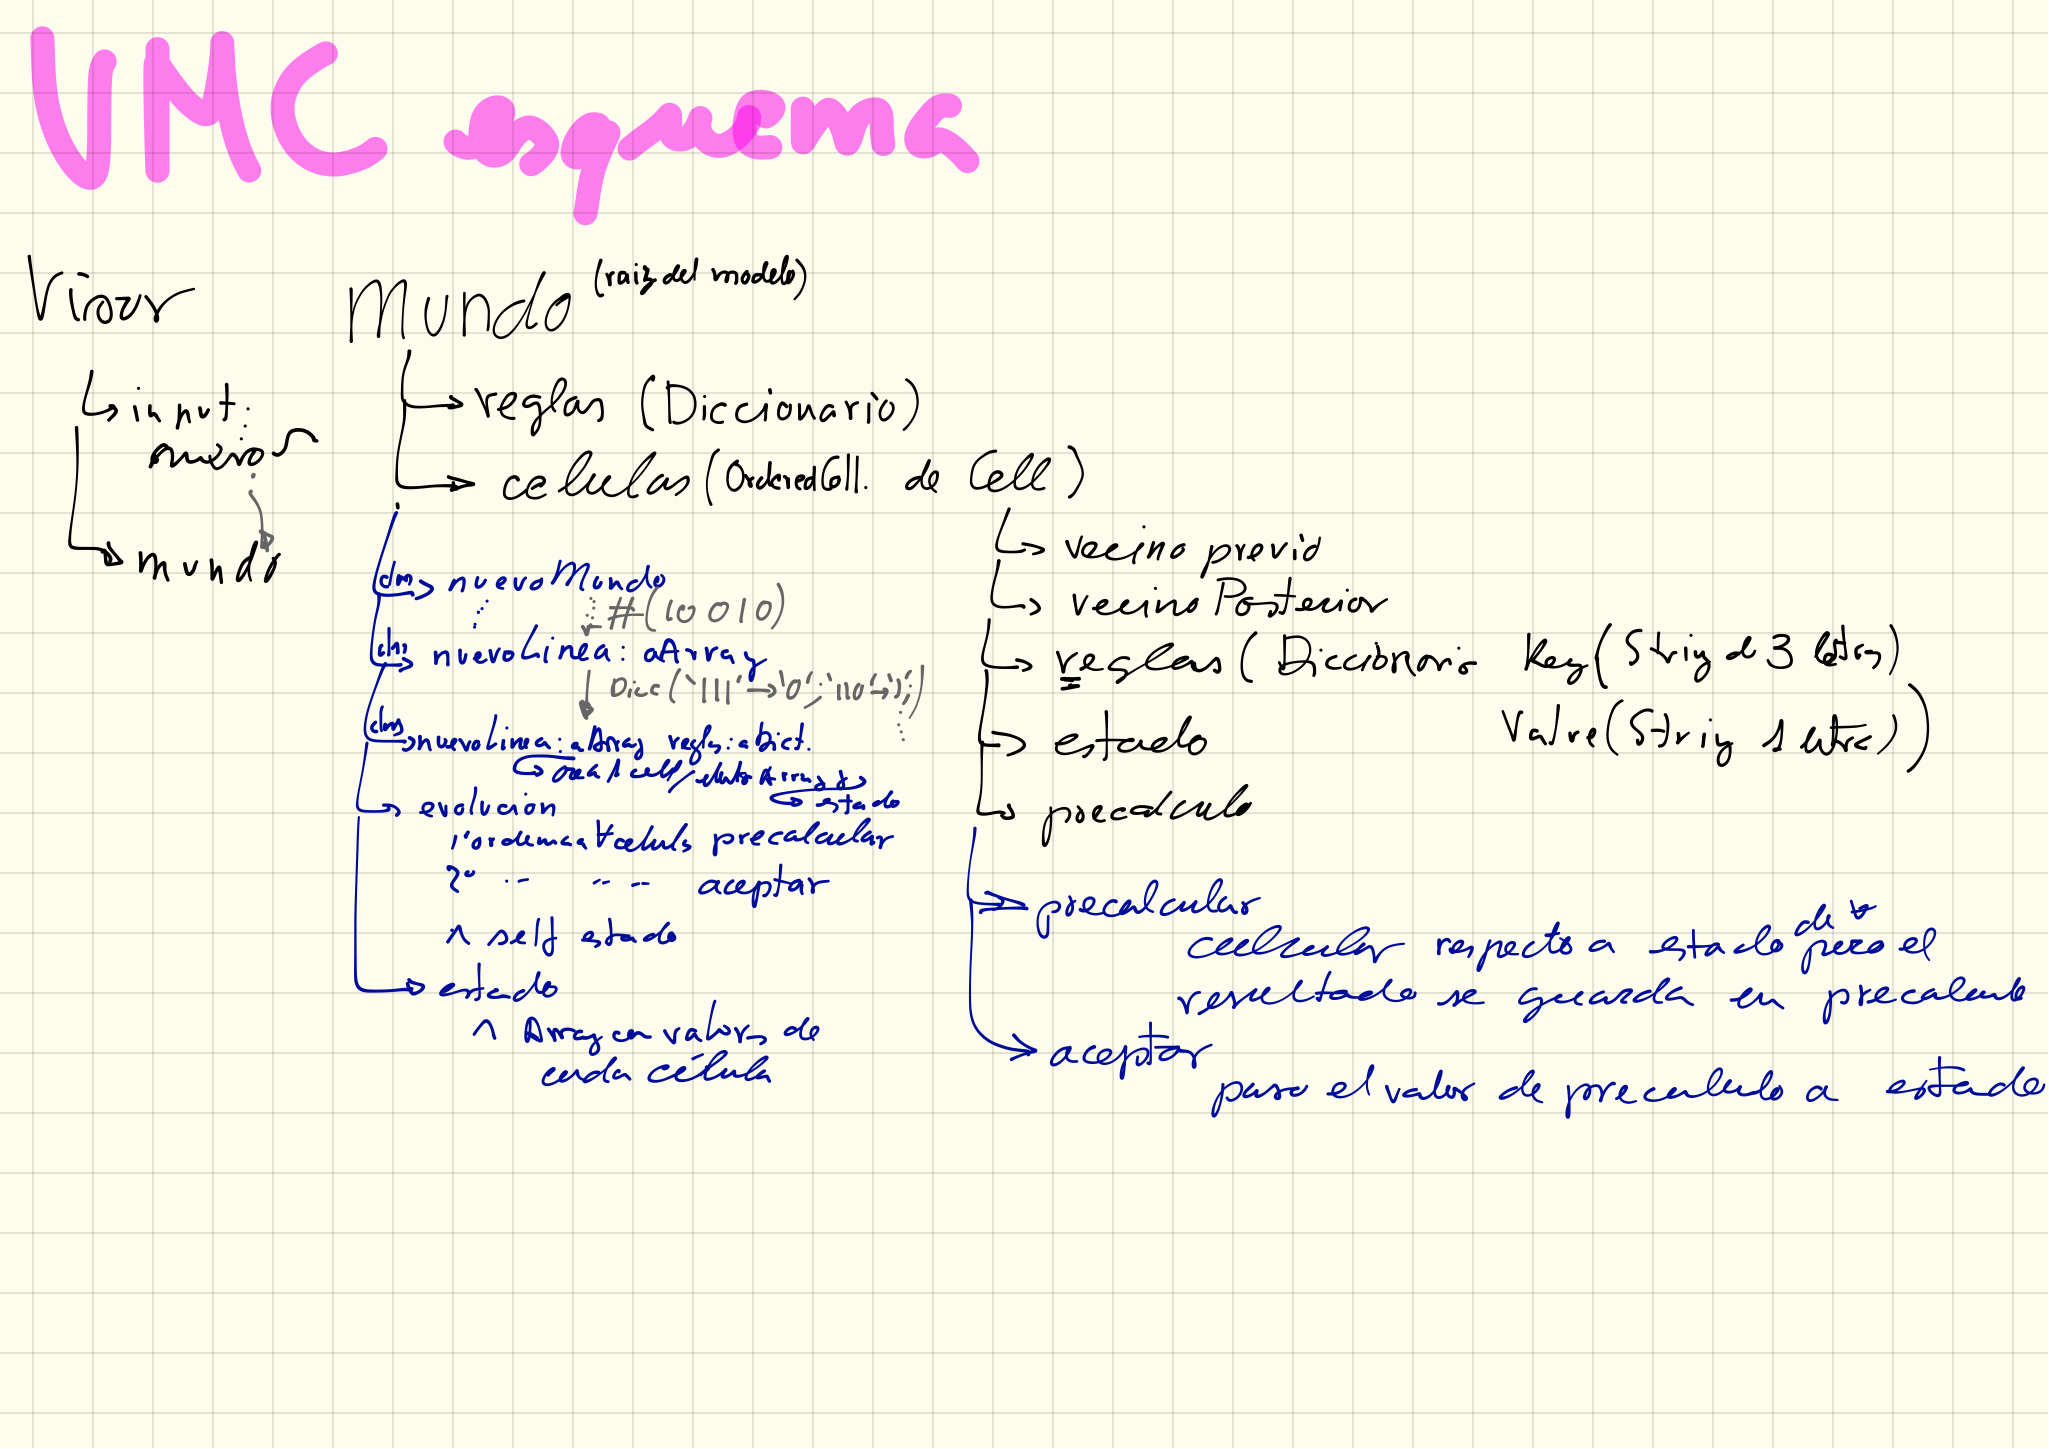 VMC esquema
Visor
input
mundo
Mundo (raiz del modelo)
reglas (Diccionario)
celulas (OrderedColl. de Cell)
nuevoMundo
#(10 010)
nuevoLinea: aArray
Dicc('111'→'0'; '110'→'1';
nuevoLinea: aArray reglas: aDict.
estado
evolucion
1º ordena a ∀ celuls precalcular
2º -- -- -- aceptar
^ self estado
estado
^ Array con valores de
cada célula
vecino previo
vecino Posterior
reglas (Diccionario Key(String de 3 letras)
Valre(String 1 letra))
estado
precalculo
precalcular
calcular respecto a estado de ∀ pero el
resultado se guarda en precalculo
aceptar
paso el valor de precalculo a estado